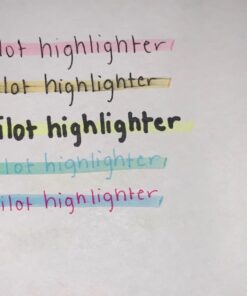 lot highlighter
lot highlighter
ilot highlighter
lot highlighter
ilot highlighter